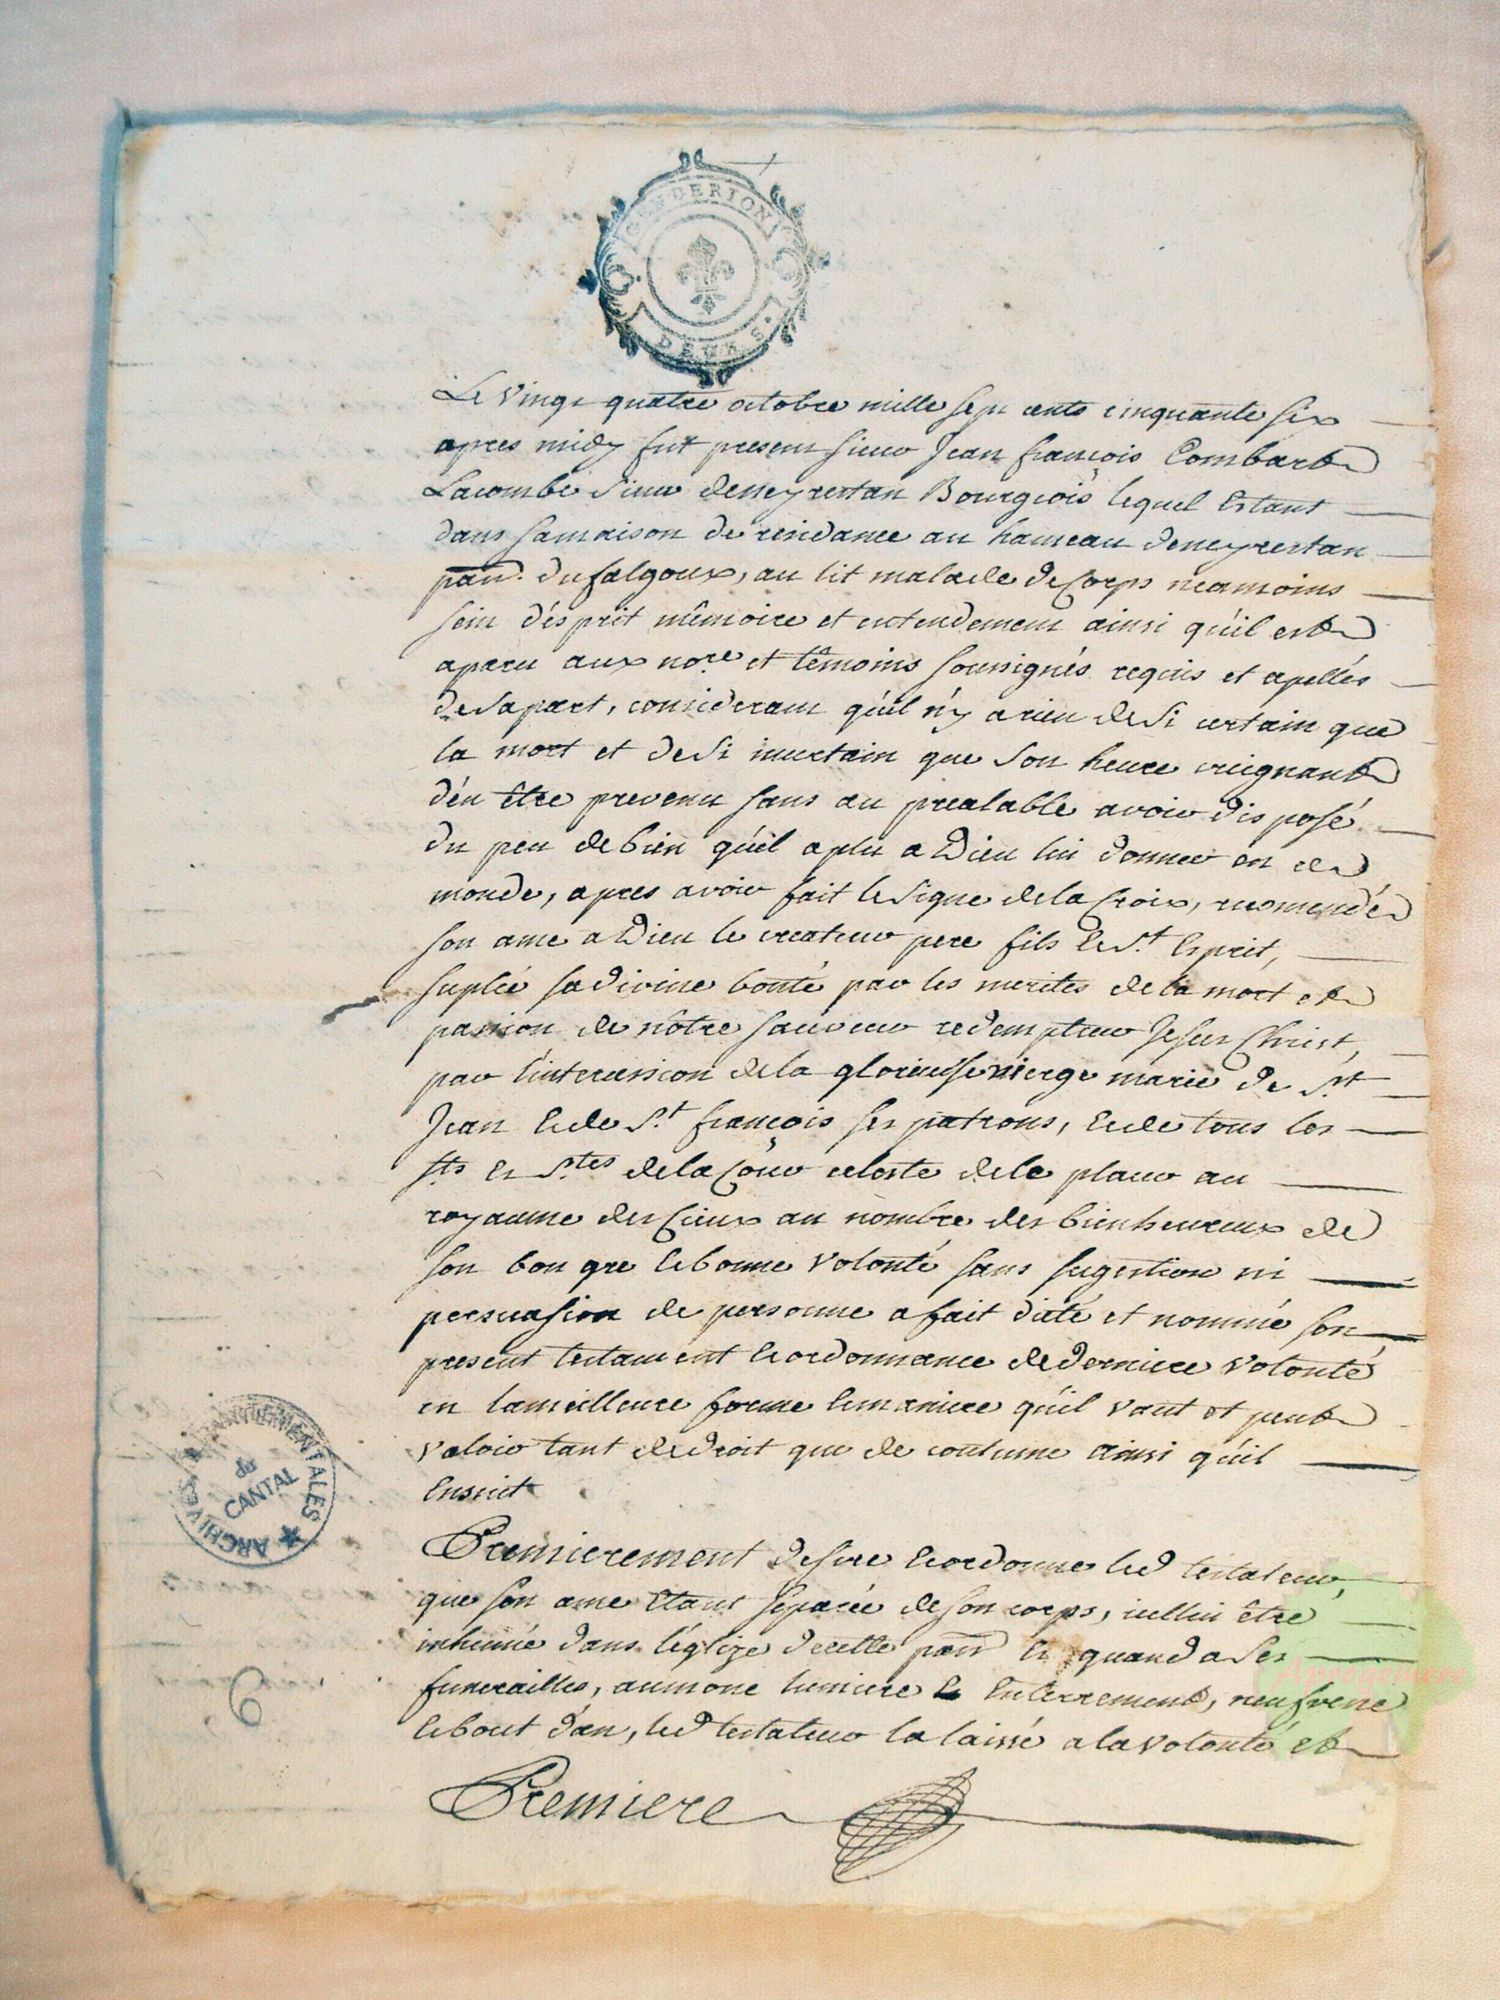 DEUX S.
Le vingt quatre octobre mille sept cents cinquante six
apres midy fut present sieur Jean françois Combart
Lacombe Sieur deneyrestan Bourgeois lequel Estant
dans samaison de residance au hameau deneyrestan
parr. dufalgoux, au lit malade de Corps neamoins
sein d'ésprit mêmoire et entendement ainsi qu'il est
aparu aux nore et têmoins soussignés requis et apellés
desapart, considerant qu'il n'y arien desi certain que
la mort et desi incertain que son heure creignant
d'én être prevenu sans au prealable avoir disposé
du peu debien qu'il aplu aDieu lui donner en ce
monde, apres avoir fait lesigne delacroix, recomendé
son ame aDieu le createur pere fils Le St Esprit,
suplié sadivine bonté par les merites dela mort et
passion de nôtre sauveur redempteur Jesus Christ,
par l'intercession dela glorieuse vierge marie de St
Jean Ede St françois ses patrons, Ede tous les
Sts Et Stes delaCour celeste dele placer au
royaume desCieux au nombre des bienheureux de
son bon gre Ebonne volonté sans sugestion ni
persuasion de personne afait dicté et nommé son
present testament Eordonnance dederniere volonté
en lameilleure forme Emaniere qu'il vaut et peut
valoir tant dedroit que de coutume ainsi qu'il
Ensuit
Premierement desire Eordonne led testateur,
que son ame Etant séparée deson corps, icellui être
inhumé dans l'églize decette parr Et quand ases
funerailles, aumone lumiere Et Enterrement, neufvene
Ebout d'an, led testateur la laissé alavolonté et
Premiere
ARCHIVES DÉPARTEMENTALES
du
CANTAL
6